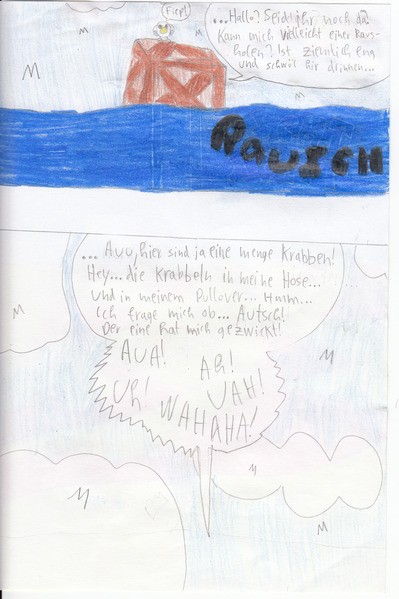 Fiep!
...Hallo? Seid ihr noch da?
Kann mich vielleicht einer Raus-
holen? Ist ziemlich eng
und schwül hir drinnen...
RAUSCH
... Auu, hier sind ja eine menge Krabben!
Hey... die Krabbeln in meine Hose...
und in meinem Pullover... Hmm...
Ich frage mich ob... Autsch!
Der eine hat mich gezwickt!
AUA! AH!
Uh! UAH!
WAHAHA!